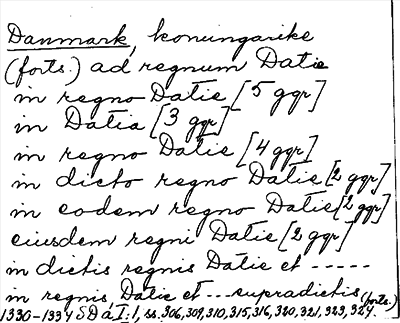 Danmark, konungarike
(forts.) ad regnum Datie
in regno Datie [5 ggr]
in Datia [3 ggr]
in regno Datie [4 ggr]
in dicto regno Datie [2 ggr]
in eodem regno Datie [2 ggr]
eiusdem regni Datie [2 ggr]
in dictis regnis Datie et -----
in regnis Datie et ... supradictis (forts.)
1330-1334 SD á I:1, ss. 306, 309, 310, 315, 316, 320, 321, 323, 324.